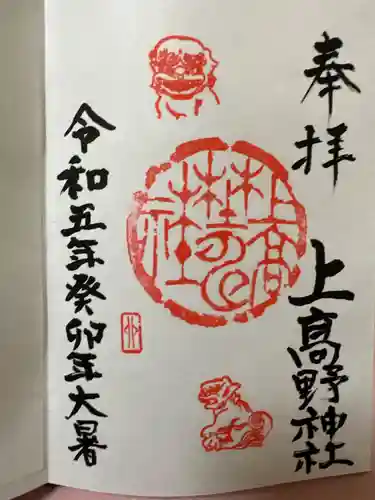 奉拝
上高野神社
令和五年癸卯年大暑